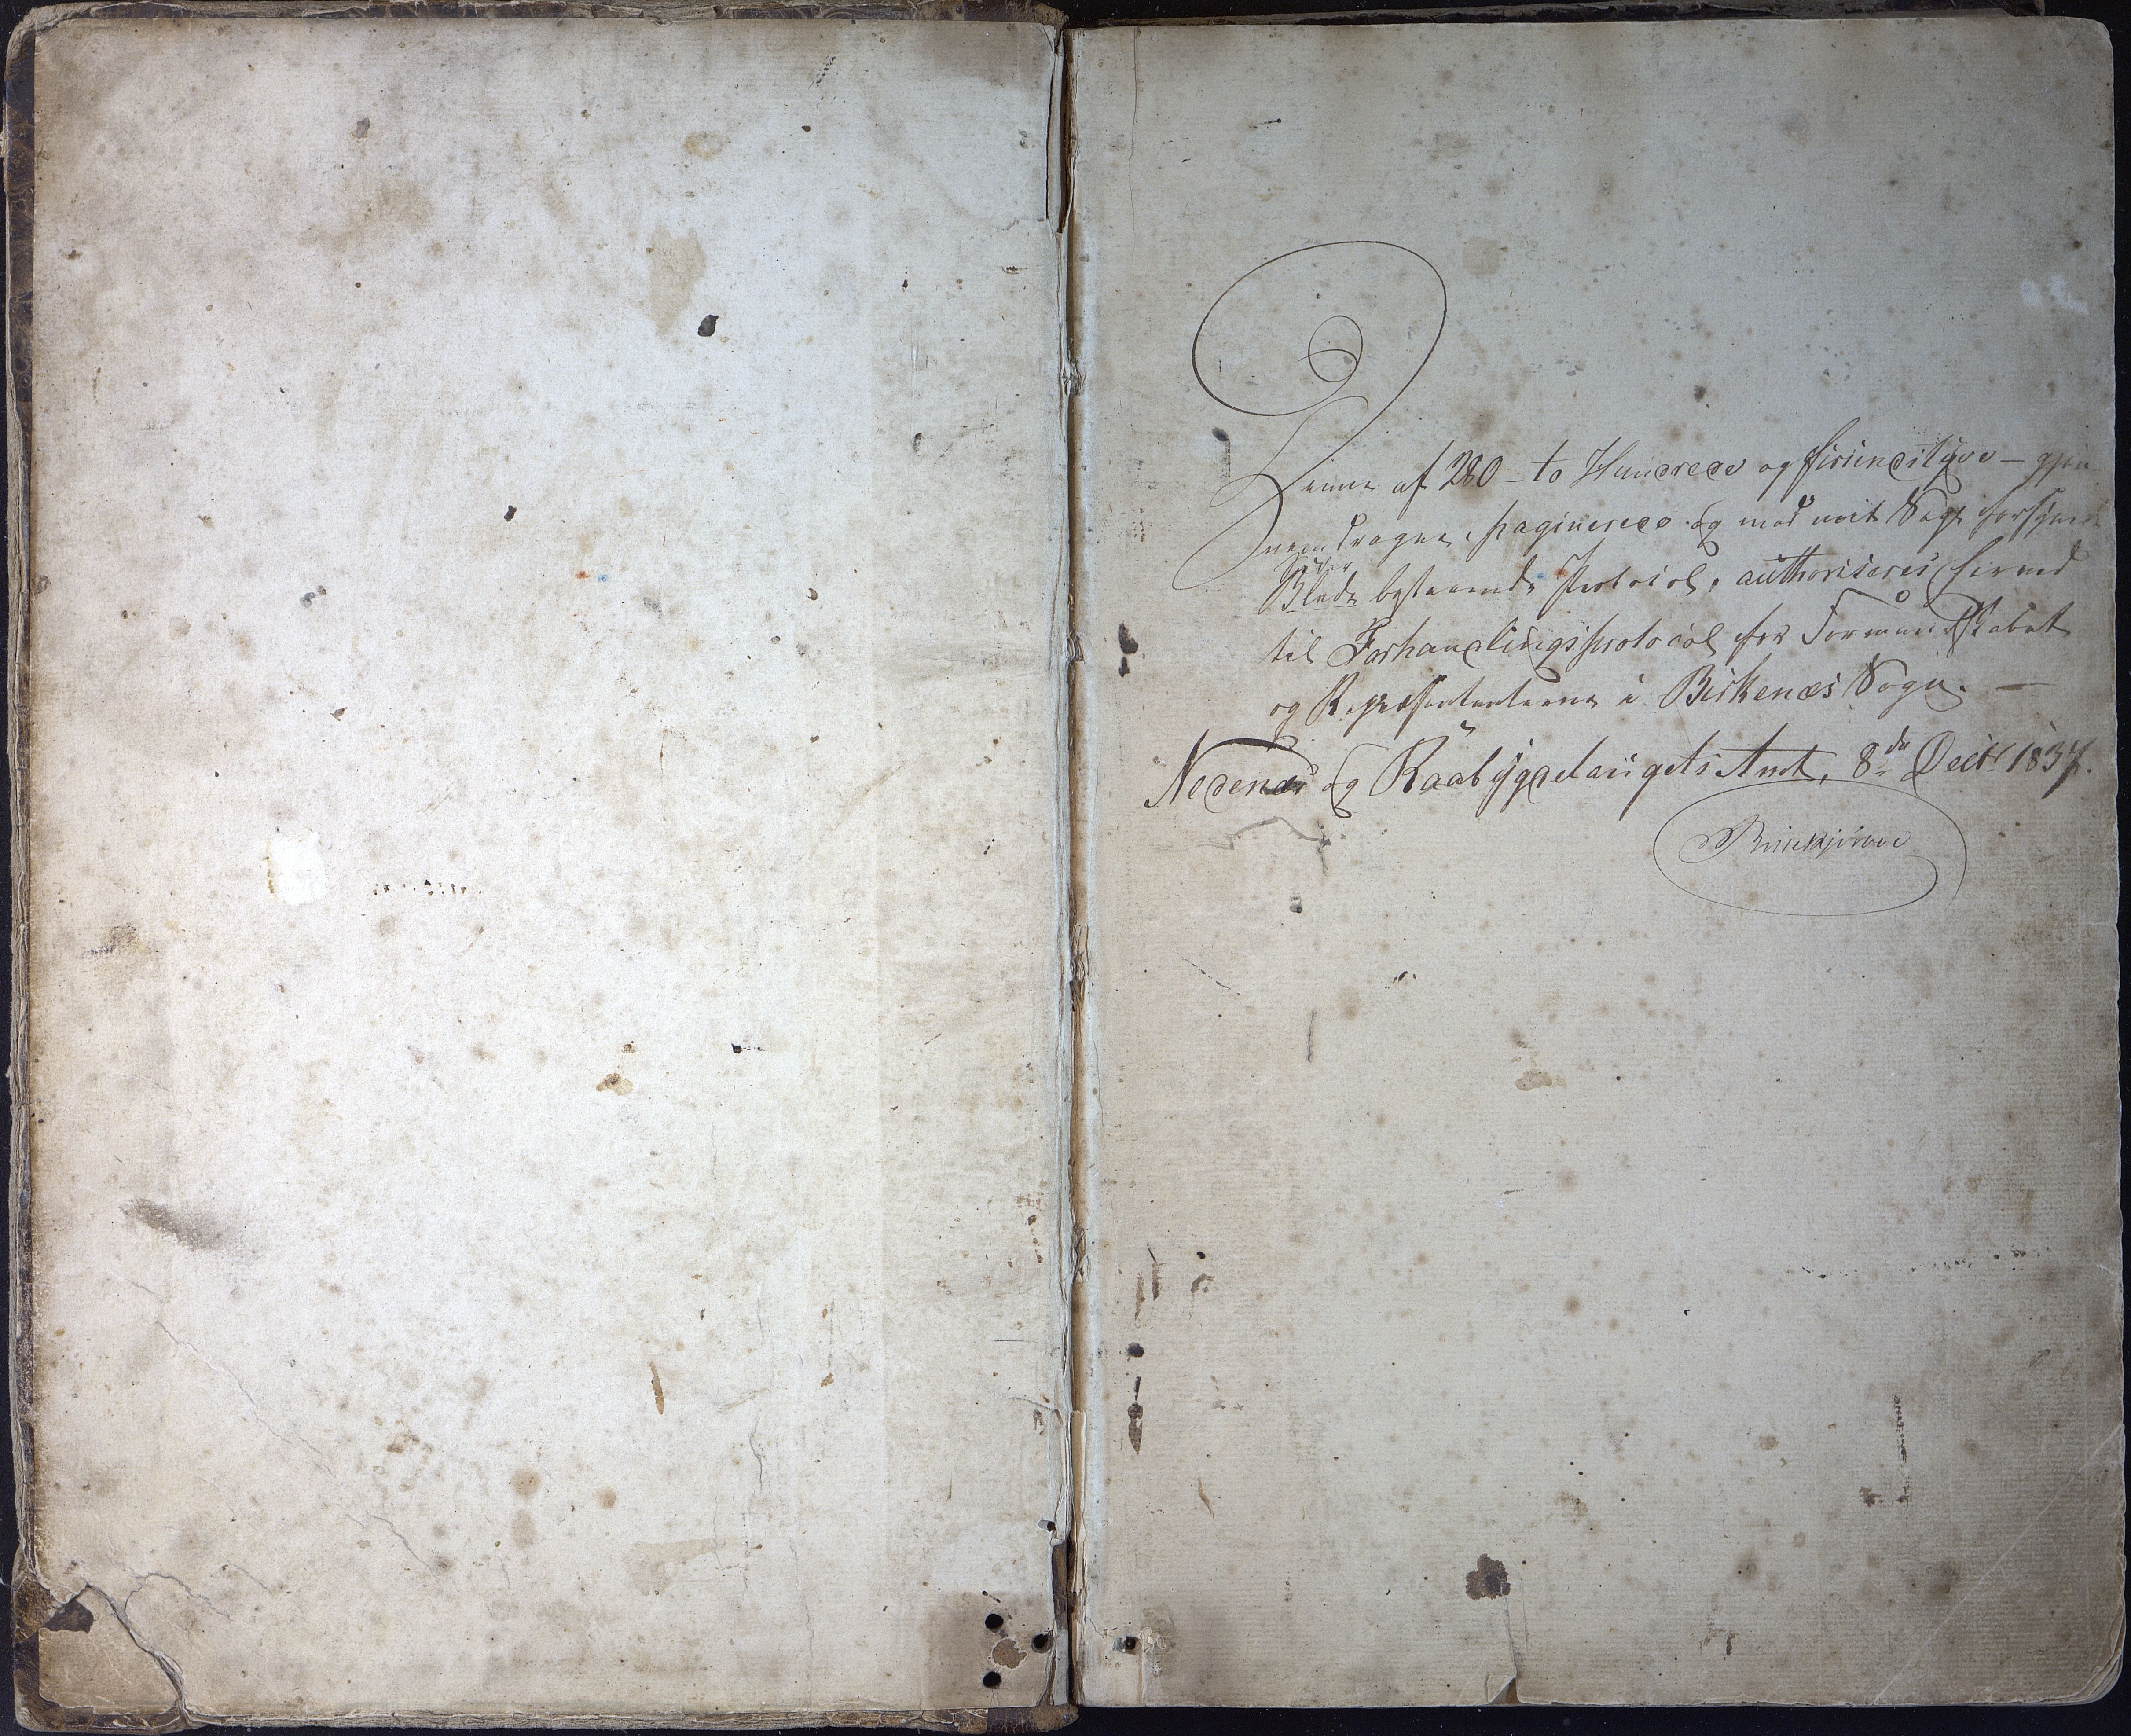 Denne af 280 – to Hundrede og firsindstyve – gjen-
nemdragne, paginerede og med mit Segl forsynede
Sider
Blade bestaaende Protocol, authoriseres herved
til Forhandlingsprotocol for Formandskabet
og Repræsentanterne i Birkenæs Sogn. —
Nedenæs og Raabygdelaugets Amt, 8de Decbr 1837.